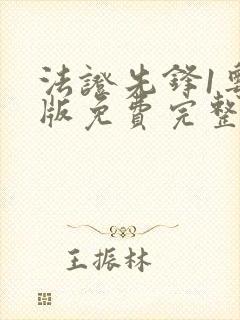 法證先鋒1粵
版免費完整
王振林